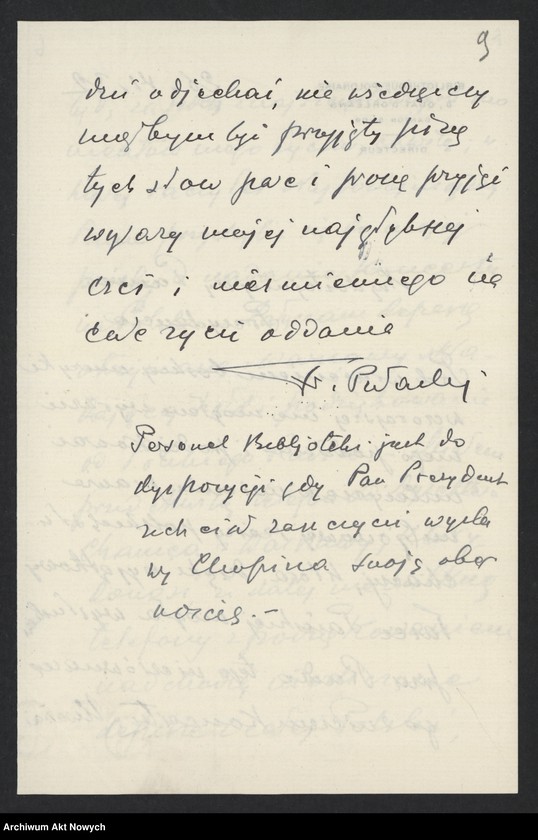 9
dziś odjechać, nie wiedząc czy
mógłbym być przyjęty piszę
tych słów parę i proszę przyjąć
wyrazy mojej najgłębszej
czci i niezmiennego na
całe życie oddania
Fr. Pułaski
Personel Biblioteki jest do
dyspozycji gdy Pan Prezydent
zechciał zaszczycić wysta
wę Chopina swoją obec
nością.–
Archiwum Akt Nowych